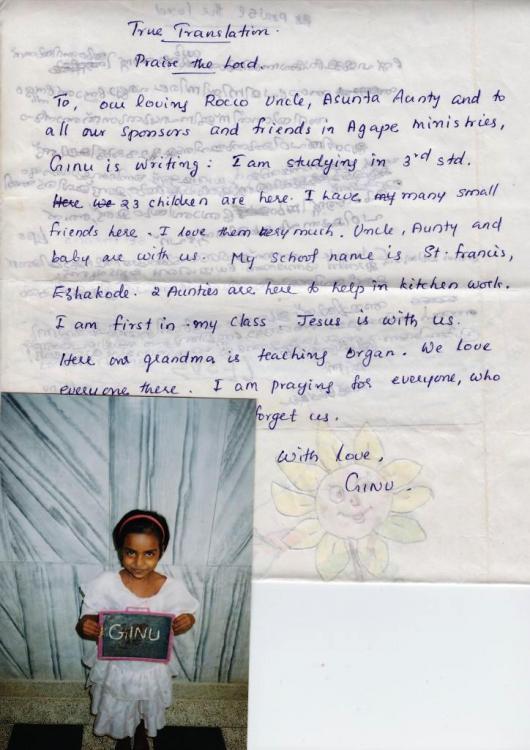 True Translation.
Praise the Lord.
To, our loving Rocco Uncle, Asunta Aunty and to
all our sponsors and friends in Agape ministries,
Ginu is writing: I am studying in 3rd std.
Here we 23 children are here. I have my many small
friends here. I love them very much. Uncle, Aunty and
baby are with us. My school name is St. francis,
Ezhakode. 2 Aunties are here to help in kitchen work.
I am first in my class. Jesus is with us.
Here our grandma is teaching organ. We love
everyone there. I am praying for everyone, who
forget us.
With love,
GINU.
GINU